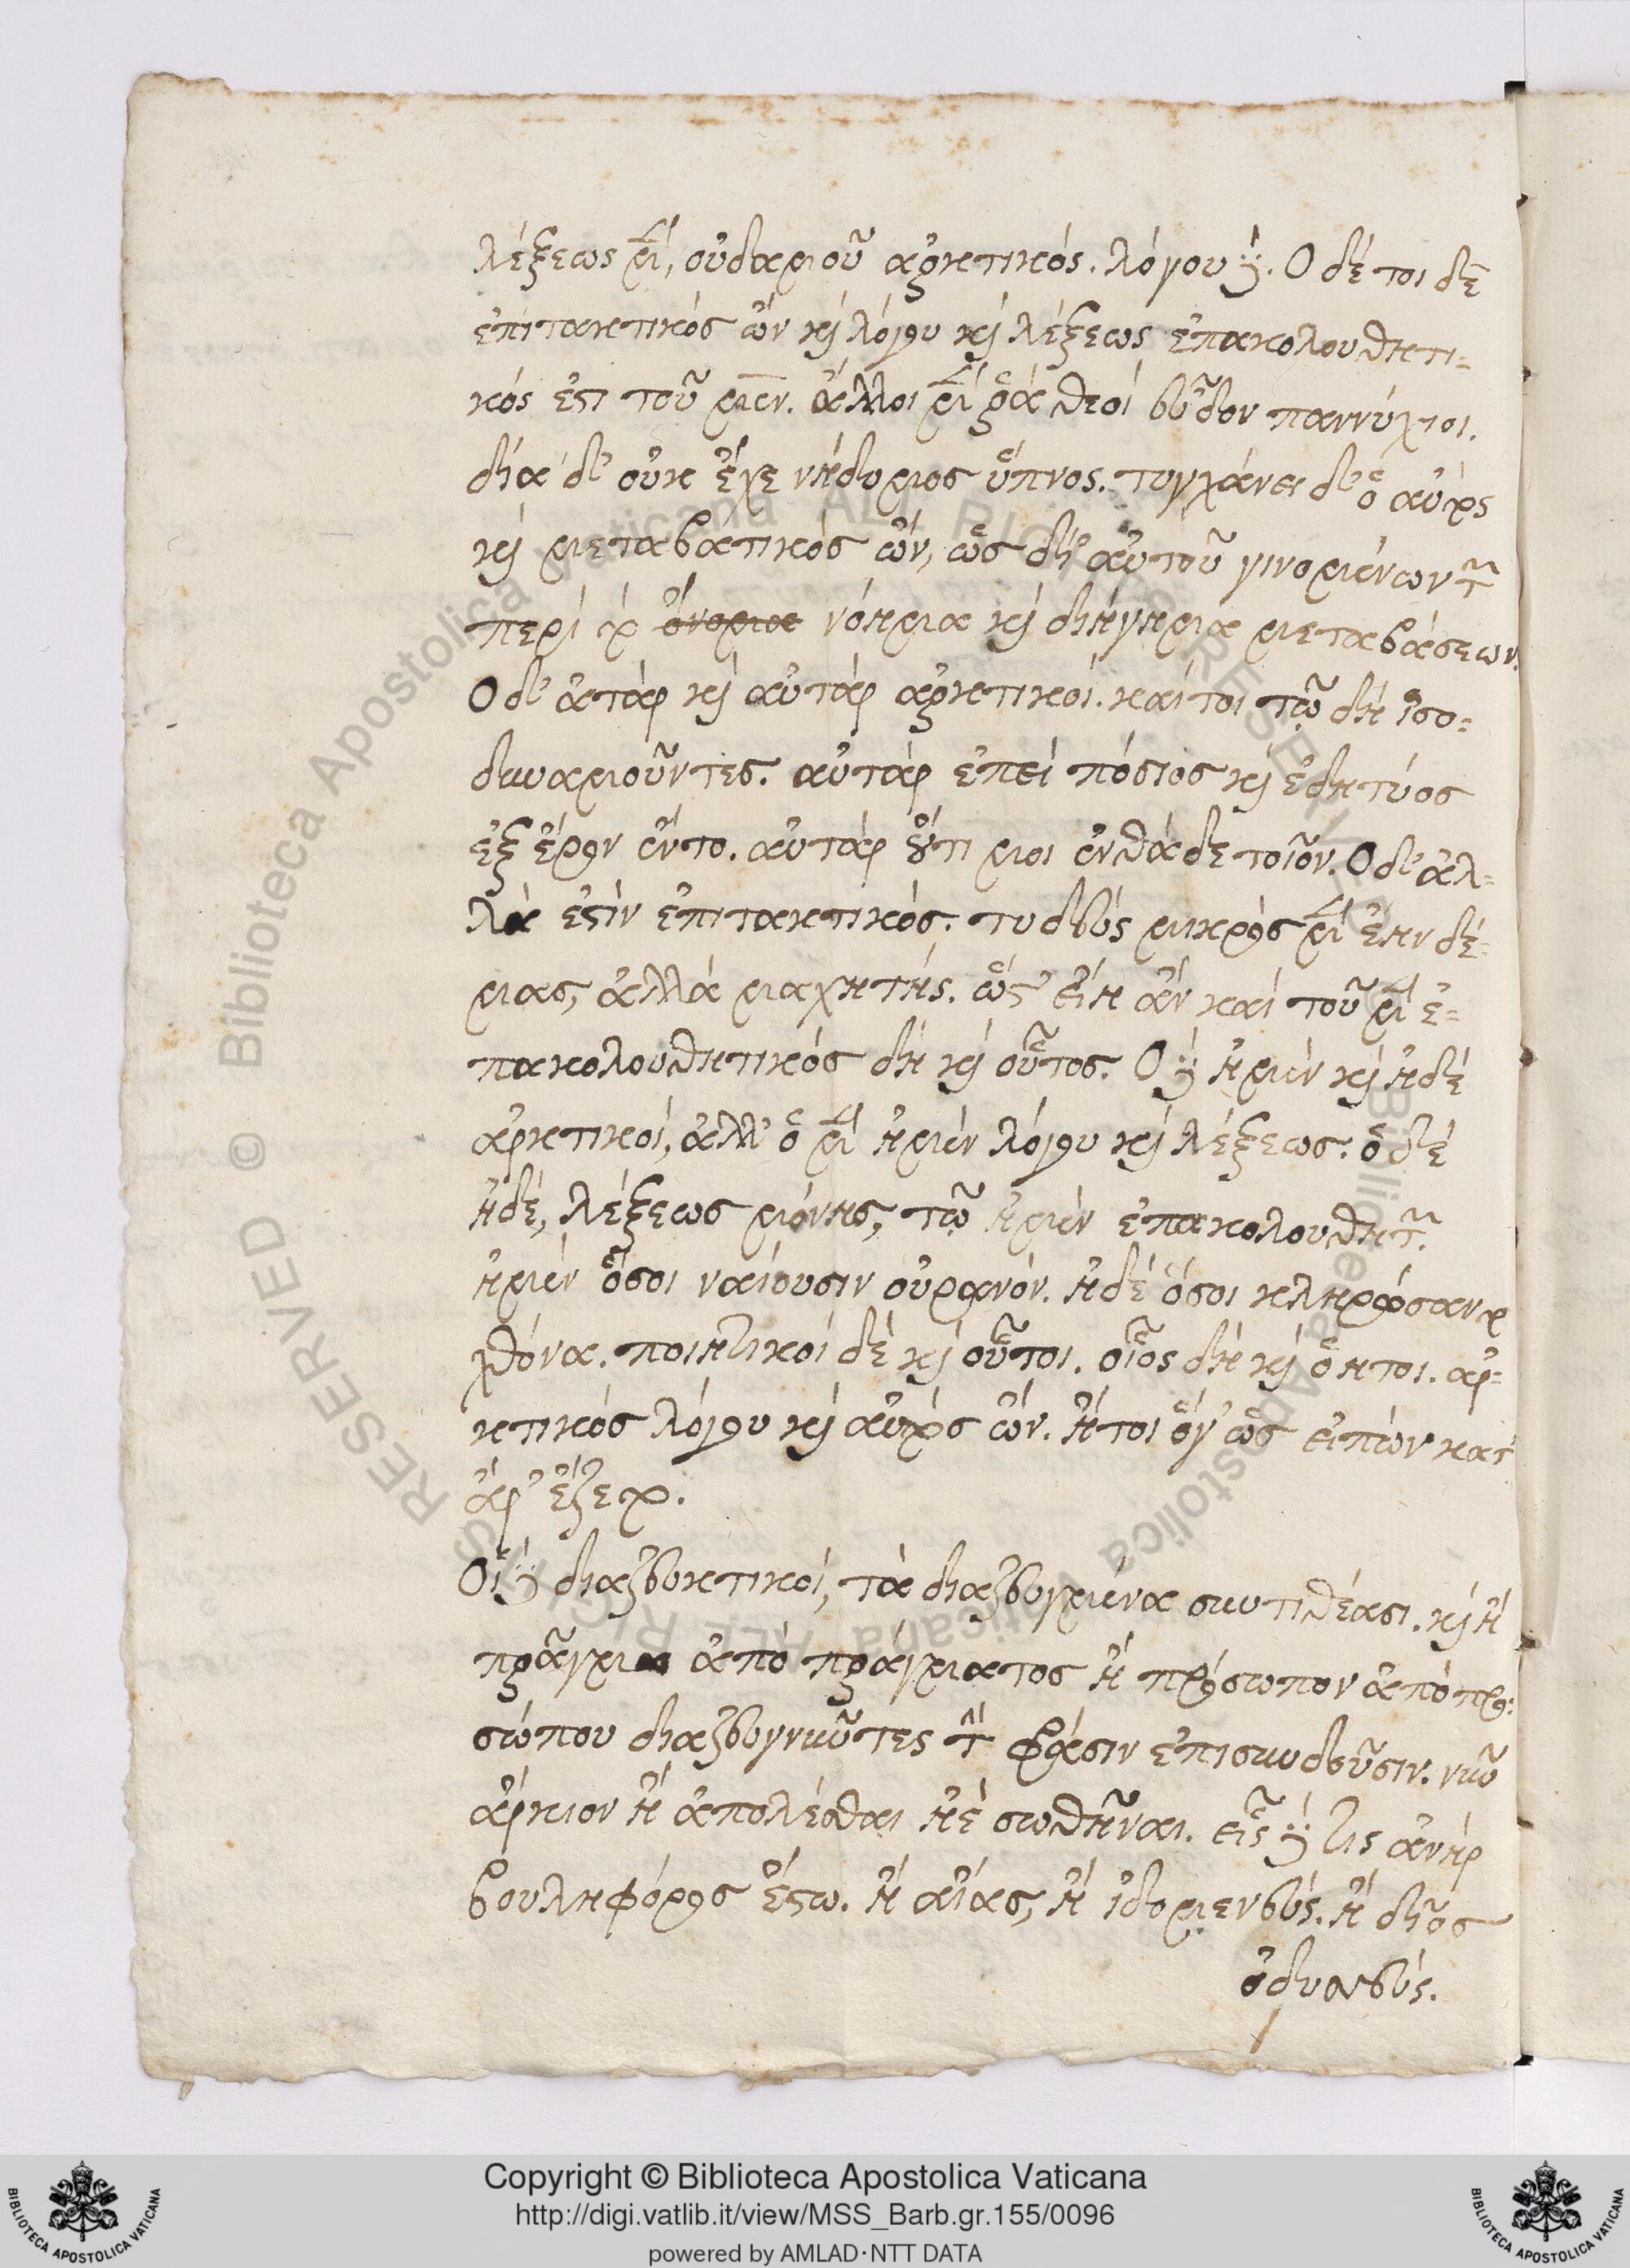 λέξεως μὲν, οὐδαμοῦ ἀρκτικός. λόγου δὲ. Ὁ δέ τοι δὲ
ἐπιτακτικὸς ὢν καὶ λόγου καὶ λέξεως ἐπακολουθητι-
κός ἐστι τοῦ μέν. ἄλλοι μὲν ῥὰ θεοὶ εὗδον παννύχιοι.
δία δ' οὐκ ἔχε νήδυμος ὕπνος. τυγχάνει δ' ὁ αὐτὸς
καὶ μεταβατικὸς ὢν, ὡς δι' αὐτοῦ γινομένων τῶν
περὶ τὸ ὄνομα νόημα καὶ διήγημα μεταβάσεων.
Ὁ δ' ἀτὰρ καὶ αὐτὰρ ἀρκτικοί. καί τοι τῷ δὴ ἰσο-
δυναμοῦντες. αὐτὰρ ἐπεὶ πόσιος καὶ ἐδητύος
ἐξ ἔρον ἕντο. αὐτὰρ ὅτι μοι ἐνθάδε τοῖον. Ὁ δ' ἀλ-
λὰ ἐστὶν ἐπιτακτικός. τυδεύς μικρὸς μὲν ἔην δέ-
μας, ἀλλὰ μαχητής. ὥστ' εἴη ἂν καὶ τοῦ μὲν ἐ-
πακολουθητικὸς δὴ καὶ οὗτος. Ὁ δὲ ἠμὲν καὶ ἠδὲ
ἀρκτικοί, ἀλλ' ὁ μὲν ἠμὲν λόγου καὶ λέξεως. ὁ δὲ
ἠδὲ, λέξεως μόνης, τῷ ἠμὲν ἐπακολουθητ.
ἠμὲν ὅσοι ναίουσιν οὐρανόν. ἠδὲ ὅσοι κληρώσαντο
χθόνα. ποιητικοὶ δὲ καὶ οὗτοι. οἷος δὴ καὶ ὁ ἤτοι. ἀρ-
κτικὸς λόγου καὶ αὐτὸς ὤν. ἤτοι ὅγ' ὡς εἰπὼν κατ'
ἄρ' ἕζετο.
Οἱ δὲ διαζευκτικοί, τὰ διαζευγμένα συντιθέασι. καὶ ἢ
πρᾶγμα ἀπὸ πράγματος ἢ πρόσωπον ἀπὸ προ-
σώπου διαζευγνῦντες τὴν φράσιν ἐπισυνδεῦσιν. νῦν
ἄρκιον ἢ ἀπολέσθαι ἠὲ σωθῆναι. εἷς δέ τις ἀνὴρ
βουληφόρος ἔστω. ἢ αἴας, ἢ ἰδομενεύς. ἢ δῖος
ὀδυσσεύς.
Copyright © Biblioteca Apostolica Vaticana
http://digi.vatlib.it/view/MSS_Barb.gr.155/0096
powered by AMLAD·NTT DATA